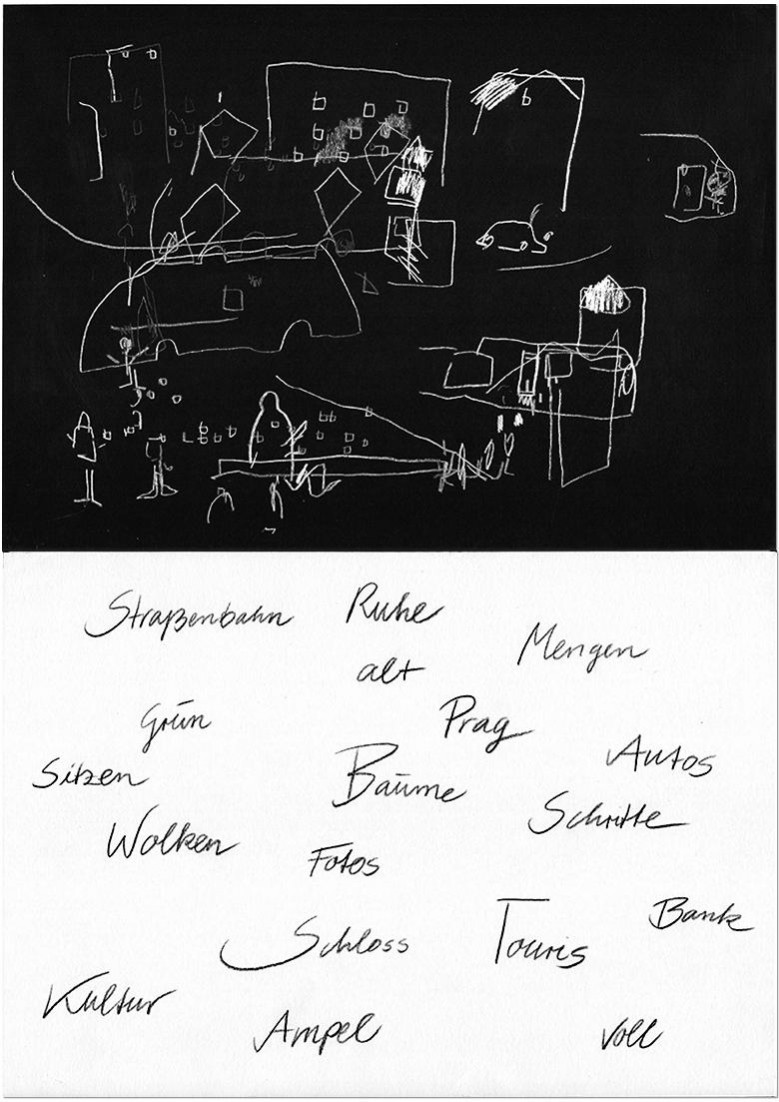 Straßenbahn
Ruhe
Mengen
alt
Grün
Prag
Autos
Sitzen
Bäume
Schritte
Wolken
Fotos
Bank
Schloss
Touris
Kultur
Ampel
voll